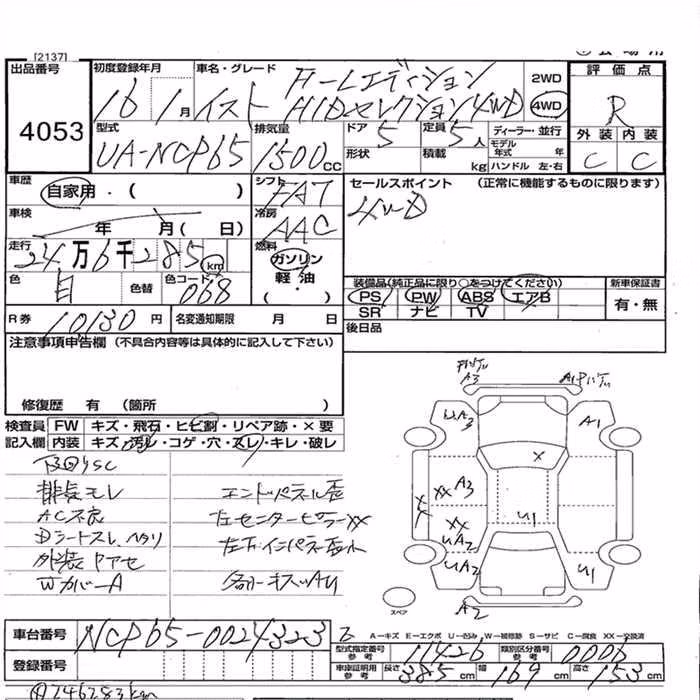 [2137]
出品番号
4053
初度登録年月
16 1月
車名・グレード
イスト
F-Lエディション
HIDセレクション4WD
2WD
4WD
評価点
R
外装 内装
C C
型式
UA-NCP65
排気量
1500cc
ドア 5
形状
定員 5人
積載 kg
ディーラー・並行
モデル年式 年
ハンドル 左・右
車歴
自家用・( )
シフト
FAT
車検
年 月( 日)
冷房
AAC
走行
24万6千285km
燃料
ガソリン
軽・油
( ・ )
色
白
色替
色コード
068
R券 10130円
名変通知期限 月 日
セールスポイント (正常に機能するものに限ります)
4WD
装備品(純正品に限り○をつけてください)
PS PW ABS エアB
SR ナビ TV
新車保証書
有・無
後日品
注意事項申告欄 (不具合内容等は具体的に記入して下さい)
修復歴 有 (箇所 )
検査員記入欄
FW キズ・飛石・ヒビ割・リペア跡・×要
内装 キズ・汚レ・コゲ・穴・スレ・キレ・破レ
下回りSC
排気モレ
AC不良
Dシートスレ、ヘタリ
外装Pアセ
WカバーA
エンドパネル歪
左センターピラーXX
各所キズ、AU
A3
A1
UA3
A1
×
XX A3
XX
UA2
U1
UA2
U1
A2
スペア
車台番号
NCP65-0024323
A-キズ E-エクボ U-凹み W-補修跡 S-サビ C-腐食 XX-交換済
登録番号
型式指定番号 参考
11426
類別区分番号 参考
0006
車庫証明用 参考
長さ 385cm
幅 169cm
高さ 153cm